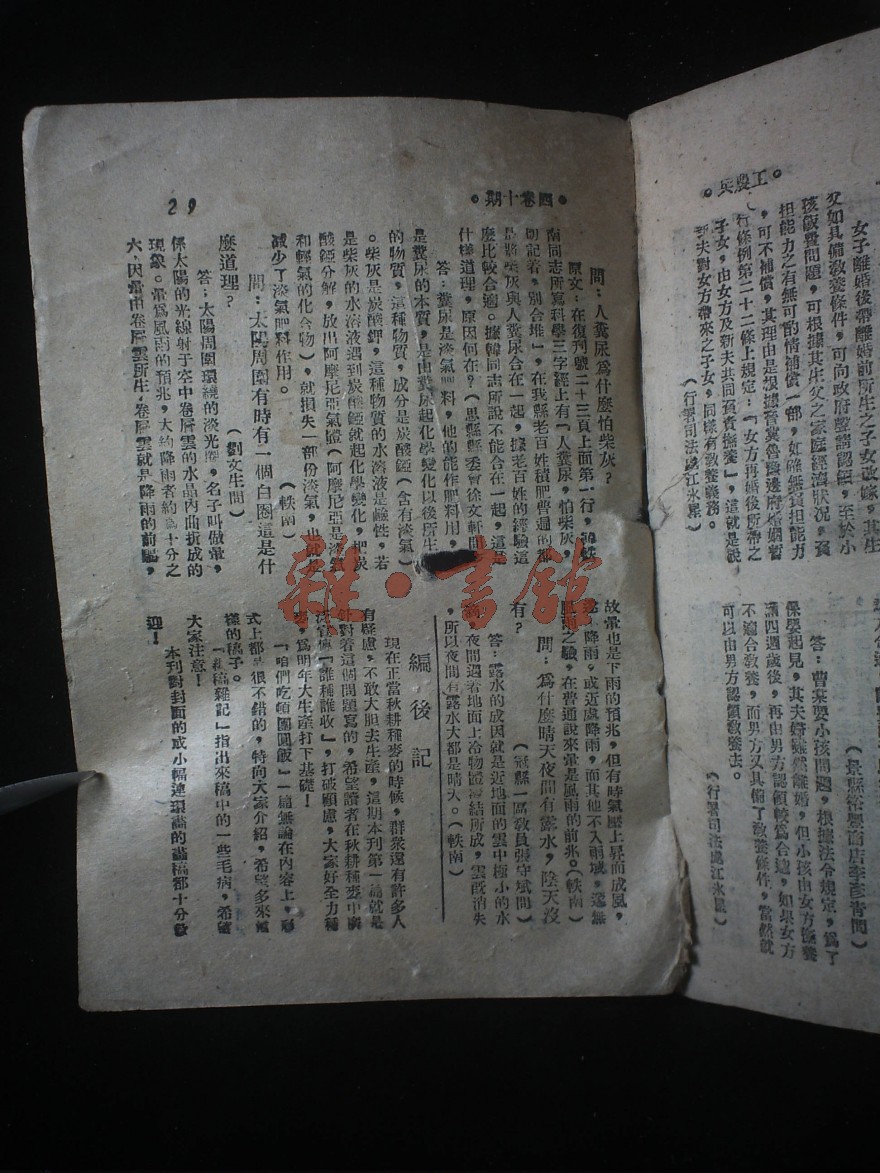 工農兵
女子離婚後帶離婚前所生之子女改嫁，其生
父如具備敎養條件，可向政府聲請認領，至於小
孩飯費問題，可根據其生父之家庭經濟狀況，
担能力之有無可酌情補償一部，如確無負担能力
，可不補償，其理由是根據晉冀魯豫邊府婚姻暫
行條例第二十二條上規定：「女方再婚後所帶之
子女，由女方及新夫共同負責撫養」，這就是說
新夫對女方帶來之子女，同樣有敎養義務。
（行署司法處江水景）
（景縣裕興商店李彥靑問）
答：曹某嬰小孩問題，根據法令規定，爲了
保嬰起見，其夫婦雖然離婚，但小孩由女方撫養
滿四週歲後，再由男方認領較爲合適，如果女方
不適合敎養，而男方又具備了敎養條件，當然就
可以由男方認領敎養去。
（行署司法處江水景）
四卷十期
29
問：人糞尿爲什麼怕柴灰？
原文：在復刊號二十三頁上面第一行，
南同志所寫科學三字經上有「人糞尿，怕柴灰，
記着，別合堆」，在我縣老百姓積肥普遍的都
是將柴灰與人糞尿合在一起，據老百姓的經驗這
麼比較合適。據韓同志所說不能合在一起，這是
什樣道理，原因何在？（恩縣縣委會徐文軒問
答：糞尿是淡氣肥料，他的能作肥料用，
是糞尿的本質，是由糞尿起化學變化以後所生
的物質，這種物質，成分是炭酸錏（含有淡氣）
。柴灰是炭酸鉀，這種物質的水溶液是鹼性，若
是柴灰的水溶液遇到炭酸錏就起化學變化，把炭
酸錏分解，放出阿摩尼亞氣體（阿摩尼亞是淡氣
和輕氣的化合物），就損失一部份淡氣，也就是
減少了淡氣肥料作用。（軼南）
問：太陽周圍有時有一個白圈這是什
麼道理？（劉文生問）
答：太陽周圍環繞的淡光圈，名子叫做暈，
係太陽的光線射于空中卷層雲的水晶內曲折成的
現象。暈爲風雨的預兆，大約降雨者約爲十分之
六，因暈由卷層雲所生，卷層雲就是降雨的前驅，
故暈也是下雨的預兆，但有時氣壓上昇而成風，
遠處降雨，或近處降雨，而其他不入雨域，遂無
風雨之驗，在普通說來暈是風雨的前兆。（軼南）
問：爲什麼晴天夜間有露水，陰天沒
有？（冠縣一區敎員張守斌問）
答：露水的成因就是近地面的雲中極小的水
，夜間遇着地面上冷物體凝結所成，雲旣消失
，所以夜間有露水大都是晴天。（軼南）
編後記
現在正當秋耕種麥的時候，群衆還有許多人
有疑慮，不敢大胆去生產，這期本刊第一篇就是
針對着這個問題寫的，希望讀者在秋耕種麥中廣
深宣傳「誰種誰收」，打破顧慮，大家好全力種
麥，爲明年大生產打下基礎！
「咱們吃頓團圓飯」一篇無論在內容上，形
式上都是很不錯的，特向大家介紹，希望多來這
樣的稿子。
「編稿雜記」指出來稿中的一些毛病，希望
大家注意！
本刊對封面的或小幅連環畫的畫稿都十分歡
迎！
雜·書館